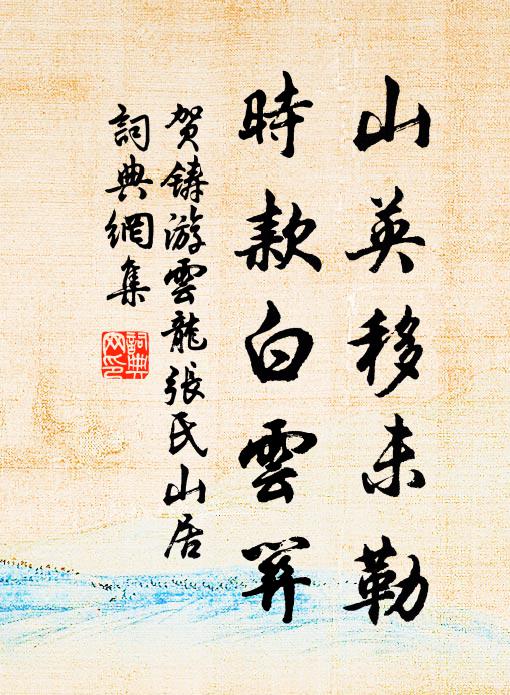 山英移未勒
時款白雲關
賀鑄游雲龍張氏山居
詞典網集
詞典網印